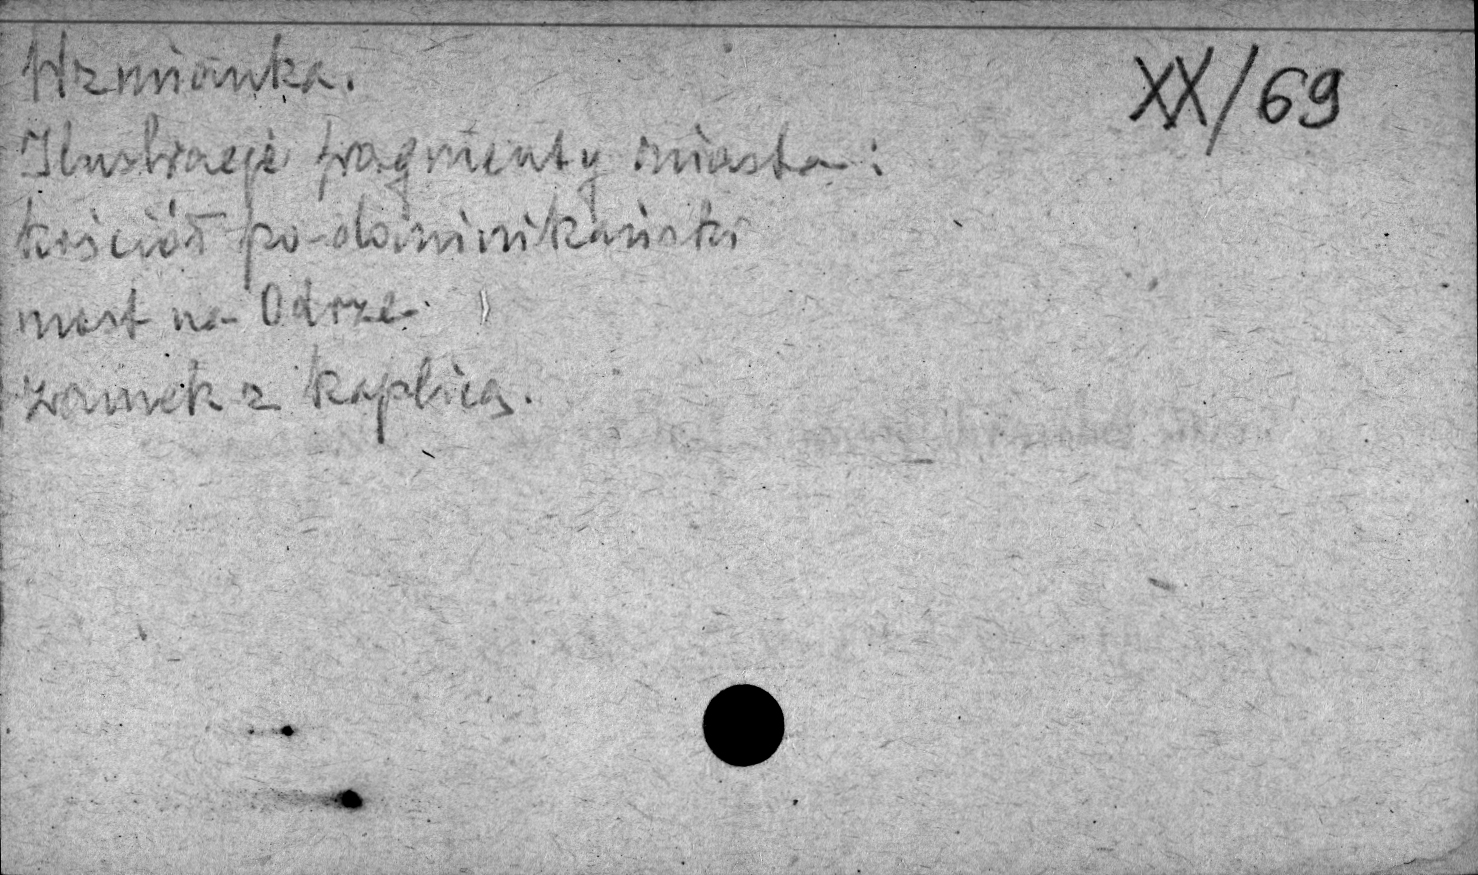 Wzmianka.
XX/69
Ilustracje fragmenty miasta:
kościół po-dominikański
most na Odrze
zamek z kaplicą.